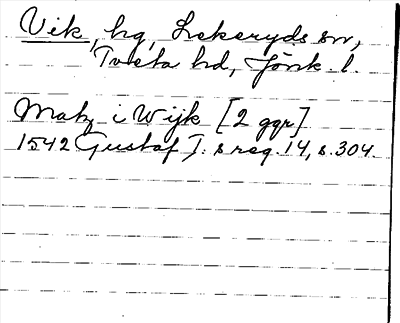 Vik, hg, Lekeryds sn,
Tveta hd, Jönk. l.
Matz i Wijk [2 ggr]
1542 Gustaf I:s reg. 14, s. 304.